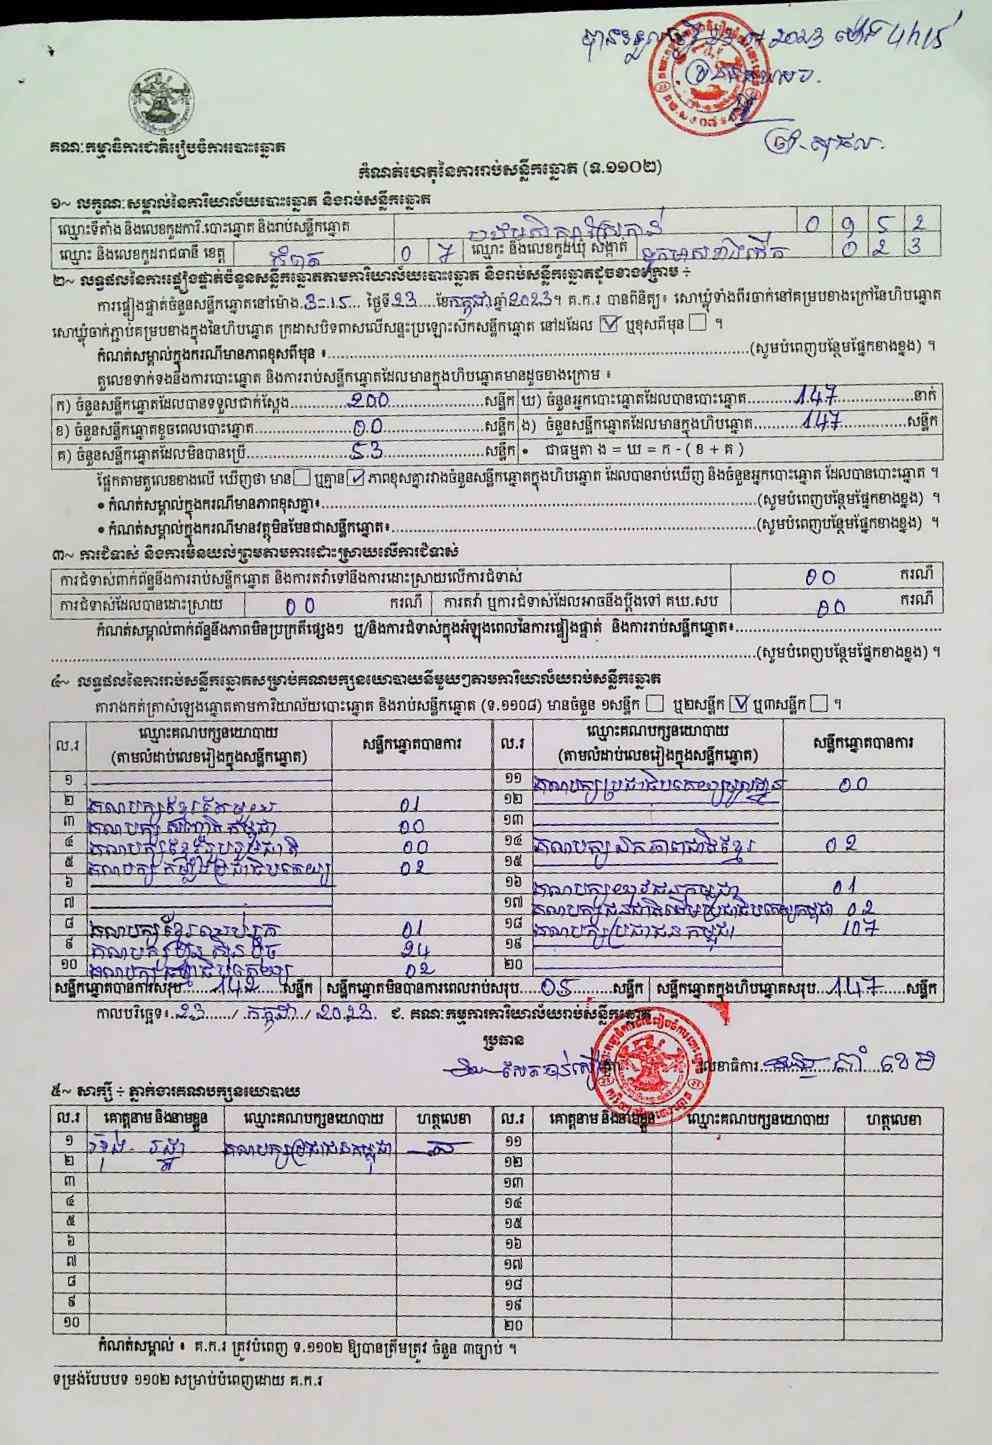 បានទទួលថ្ងៃទី 23 2023 ម៉ោង 4h15
គណៈកម្មាធិការជាតិរៀបចំការបោះឆ្នោត
កំណត់ហេតុនៃការរាប់សន្លឹកឆ្នោត (ទ.១១០២)
១~ លក្ខណៈសម្គាល់នៃការិយាល័យបោះឆ្នោត និងរាប់សន្លឹកឆ្នោត
ឈ្មោះទីតាំង និងលេខកូដការិ.បោះឆ្នោត និងរាប់សន្លឹកឆ្នោត 0 9 5 2
ឈ្មោះ និងលេខកូដរាជធានី ខេត្ត កំពត 0 7 ឈ្មោះ និងលេខកូដឃុំ សង្កាត់ 0 2 3
២~ លទ្ធផលនៃការផ្ទៀងផ្ទាត់ចំនួនសន្លឹកឆ្នោតតាមការិយាល័យបោះឆ្នោត និងរាប់សន្លឹកឆ្នោតដូចខាងក្រោម ÷
ការផ្ទៀងផ្ទាត់ចំនួនសន្លឹកឆ្នោតនៅម៉ោង.3-15.... ថ្ងៃទី.23....ខែកក្កដាឆ្នាំ2023។ គ.ក.រ បានពិនិត្យ៖ សោឃ្លុំទាំងពីរចាក់នៅគម្របខាងក្រៅនៃហិបឆ្នោត
សោឃ្លុំចាក់ភ្ជាប់គម្របខាងក្នុងនៃហិបឆ្នោត ក្រដាសបិទពាសលើសន្ទះប្រឡោះស៊កសន្លឹកឆ្នោត នៅដដែល ☑ ឬខុសពីមុន ☐ ។
កំណត់សម្គាល់ក្នុងករណីមានភាពខុសពីមុន ៖.....(សូមបំពេញបន្ថែមផ្នែកខាងខ្នង) ។
តួលេខទាក់ទងនឹងការបោះឆ្នោត និងការរាប់សន្លឹកឆ្នោតដែលមានក្នុងហិបឆ្នោតមានដូចខាងក្រោម ៖
ក) ចំនួនសន្លឹកឆ្នោតដែលបានទទួលជាក់ស្តែង..........200..........សន្លឹក ឃ) ចំនួនអ្នកបោះឆ្នោតដែលបានបោះឆ្នោត..........147..........នាក់
ខ) ចំនួនសន្លឹកឆ្នោតខូចពេលបោះឆ្នោត..........00..........សន្លឹក ង) ចំនួនសន្លឹកឆ្នោតដែលមានក្នុងហិបឆ្នោត..........147..........សន្លឹក
គ) ចំនួនសន្លឹកឆ្នោតដែលមិនបានប្រើ..........53..........សន្លឹក • ជាធម្មតា ង = ឃ = ក - ( ខ + គ )
ផ្អែកតាមតួលេខខាងលើ ឃើញថា មាន ☐ ឬគ្មាន ☑ ភាពខុសគ្នារវាងចំនួនសន្លឹកឆ្នោតក្នុងហិបឆ្នោត ដែលបានរាប់ឃើញ និងចំនួនអ្នកបោះឆ្នោត ដែលបានបោះឆ្នោត ។
• កំណត់សម្គាល់ក្នុងករណីមានភាពខុសគ្នា៖.....(សូមបំពេញបន្ថែមផ្នែកខាងខ្នង) ។
• កំណត់សម្គាល់ក្នុងករណីមានវត្ថុមិនមែនជាសន្លឹកឆ្នោត៖.....(សូមបំពេញបន្ថែមផ្នែកខាងខ្នង) ។
៣~ ការជំទាស់ និងការមិនយល់ព្រមតាមការដោះស្រាយលើការជំទាស់
ការជំទាស់ពាក់ព័ន្ធនឹងការរាប់សន្លឹកឆ្នោត និងការតវ៉ាទៅនឹងការដោះស្រាយលើការជំទាស់ 00 ករណី
ការជំទាស់ដែលបានដោះស្រាយ 00 ករណី ការតវ៉ា ឬការជំទាស់ដែលអាចនឹងប្តឹងទៅ គឃ.សប 00 ករណី
កំណត់សម្គាល់ពាក់ព័ន្ធនឹងភាពមិនប្រក្រតីផ្សេងៗ ឬ/និងការជំទាស់ក្នុងអំឡុងពេលនៃការផ្ទៀងផ្ទាត់ និងការរាប់សន្លឹកឆ្នោត៖.....
.....(សូមបំពេញបន្ថែមផ្នែកខាងខ្នង) ។
៤~ លទ្ធផលនៃការរាប់សន្លឹកឆ្នោតសម្រាប់គណបក្សនយោបាយនីមួយៗតាមការិយាល័យរាប់សន្លឹកឆ្នោត
តារាងកត់ត្រាសំឡេងឆ្នោតតាមការិយាល័យបោះឆ្នោត និងរាប់សន្លឹកឆ្នោត (ទ.១១០៨) មានចំនួន ១សន្លឹក ☐ ឬ២សន្លឹក ☑ ឬ៣សន្លឹក ☐ ។
ល.រ ឈ្មោះគណបក្សនយោបាយ (តាមលំដាប់លេខរៀងក្នុងសន្លឹកឆ្នោត) សន្លឹកឆ្នោតបានការ ល.រ ឈ្មោះគណបក្សនយោបាយ (តាមលំដាប់លេខរៀងក្នុងសន្លឹកឆ្នោត) សន្លឹកឆ្នោតបានការ
១ ១១ គណបក្សប្រជាធិបតេយ្យមូលដ្ឋាន 00
២ គណបក្សខ្មែរតែមួយ 01 ១២
៣ គណបក្សសញ្ជាតិកម្ពុជា 00 ១៣
៤ គណបក្សខ្មែររួបរួមជាតិ 00 ១៤ គណបក្សឯកភាពជាតិខ្មែរ 02
៥ គណបក្សកម្លាំងប្រជាធិបតេយ្យ 02 ១៥
៦ ១៦ គណបក្សយុវជនកម្ពុជា 01
៧ ១៧ គណបក្សជនជាតិដើមប្រជាធិបតេយ្យកម្ពុជា 02
៨ គណបក្សខ្មែរឈប់ក្រ 01 ១៨ គណបក្សប្រជាជនកម្ពុជា 107
៩ គណបក្សហ្វ៊ុនស៊ិនប៉ិច 24 ១៩
១០ គណបក្សធម្មាធិបតេយ្យ 02 ២០
សន្លឹកឆ្នោតបានការសរុប......142......សន្លឹក សន្លឹកឆ្នោតមិនបានការពេលរាប់សរុប....05.....សន្លឹក សន្លឹកឆ្នោតក្នុងហិបឆ្នោតសរុប...147......សន្លឹក
កាលបរិច្ឆេទ៖.23....../.កក្កដា./.2023. ជ. គណៈកម្មការការិយាល័យរាប់សន្លឹកឆ្នោត
ប្រធាន
លេខាធិការ
៥~ សាក្សី ÷ ភ្នាក់ងារគណបក្សនយោបាយ
ល.រ គោត្តនាម និងនាមខ្លួន ឈ្មោះគណបក្សនយោបាយ ហត្ថលេខា ល.រ គោត្តនាម និងនាមខ្លួន ឈ្មោះគណបក្សនយោបាយ ហត្ថលេខា
១ គណបក្សប្រជាជនកម្ពុជា ១១
២ ១២
៣ ១៣
៤ ១៤
៥ ១៥
៦ ១៦
៧ ១៧
៨ ១៨
៩ ១៩
១០ ២០
កំណត់សម្គាល់ ៖ គ.ក.រ ត្រូវបំពេញ ទ.១១០២ ឱ្យបានត្រឹមត្រូវ ចំនួន ៣ច្បាប់ ។
ទម្រង់បែបបទ ១១០២ សម្រាប់បំពេញដោយ គ.ក.រ